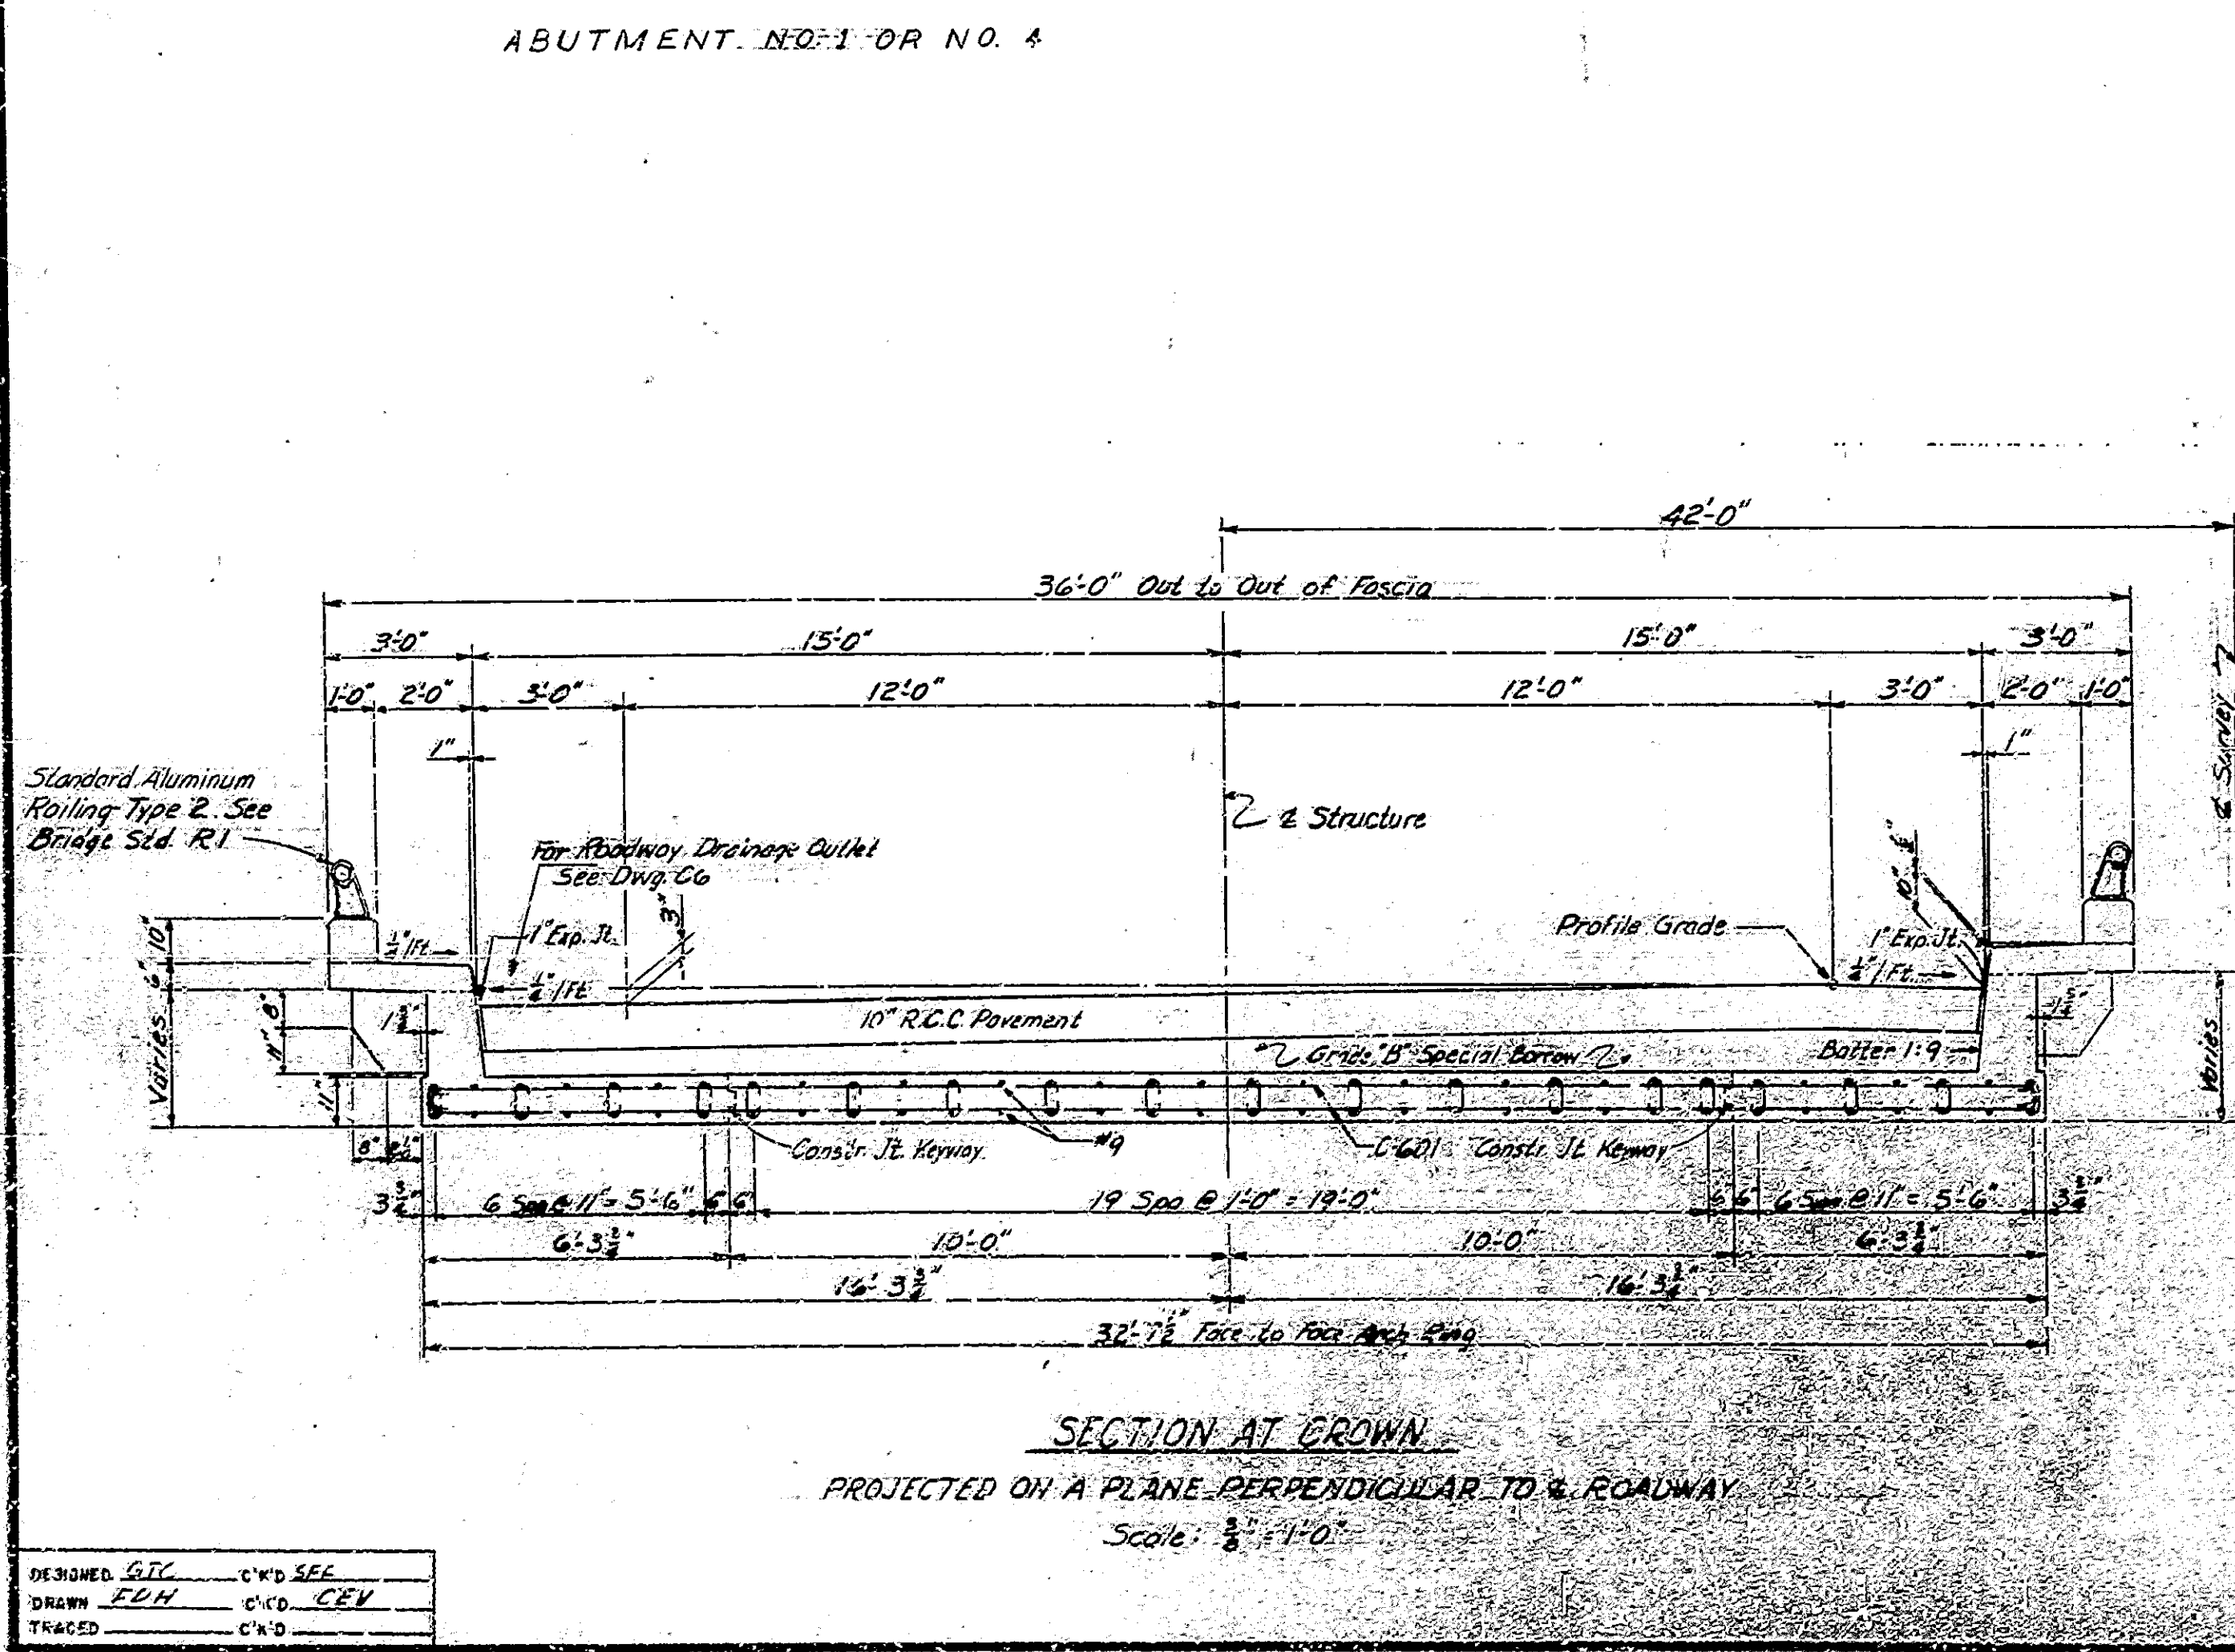 ABUTMENT NO. 1 OR NO. 4
42'-0"
36'-0" Out to Out of Fascia
3'-0" 15'-0" 15'-0" 3'-0"
1'-0" 2'-0" 3'-0" 12'-0" 12'-0" 3'-0" 2'-0" 1'-0"
1" 1"
℄ Survey
Standard Aluminum
Railing Type 2. See
Bridge Std. R1
℄ Structure
For Roadway Drainage Outlet
See Dwg. C6
3"
10" 6"
Profile Grade
1" Exp. Jt.
1" Exp. Jt.
10"
6"
Varies
8"
11"
11"
1/4"/Ft.
1/4"/Ft.
10" R.C.C. Pavement
Grade "B" Special Borrow
Batter 1:9
Varies
8"
Constr. Jt. Keyway
#9
C-601
Constr. Jt. Keyway
3 3/4" 6 Spa @ 11" = 5'-6" 6" 6" 19 Spa @ 1'-0" = 19'-0" 6" 6" 6 Spa @ 11" = 5'-6" 3 3/4"
6'-3 3/4" 10'-0" 10'-0" 6'-3 3/4"
16'-3 3/4" 16'-3 3/4"
32'-7 1/2" Face to Face Arch Ring
SECTION AT CROWN
PROJECTED ON A PLANE PERPENDICULAR TO ℄ ROADWAY
Scale: 3/8" = 1'-0"
DESIGNED GTC C'K'D SFE
DRAWN FDH C'K'D CEV
TRACED C'K'D